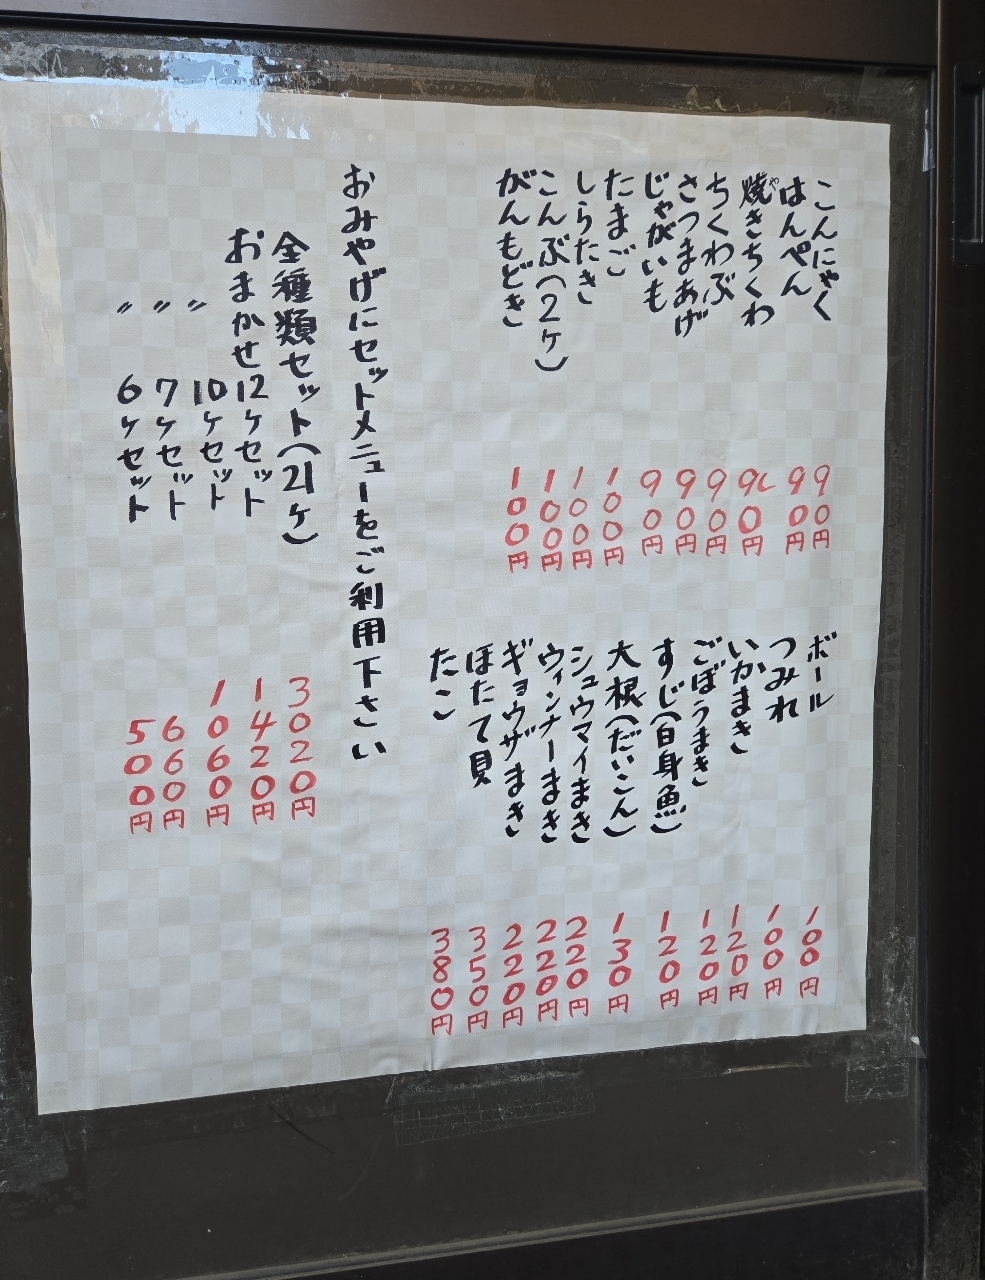 こんにゃく 90円
はんぺん 90円
焼きちくわ 90円
ちくわぶ 90円
さつまあげ 90円
じゃがいも 90円
たまご 100円
しらたき 100円
こんぶ(2ケ) 100円
がんもどき 100円
ボール 100円
つみれ 100円
いかまき 120円
ごぼうまき 120円
すじ(白身魚) 120円
大根(だいこん) 130円
シュウマイまき 220円
ウィンナーまき 220円
ギョウザまき 220円
ほたて貝 350円
たこ 380円
おみやげにセットメニューをご利用下さい
全種類セット(21ケ) 3020円
おまかせ12ケセット 1420円
〃 10ケセット 1060円
〃 7ケセット 660円
〃 6ケセット 500円